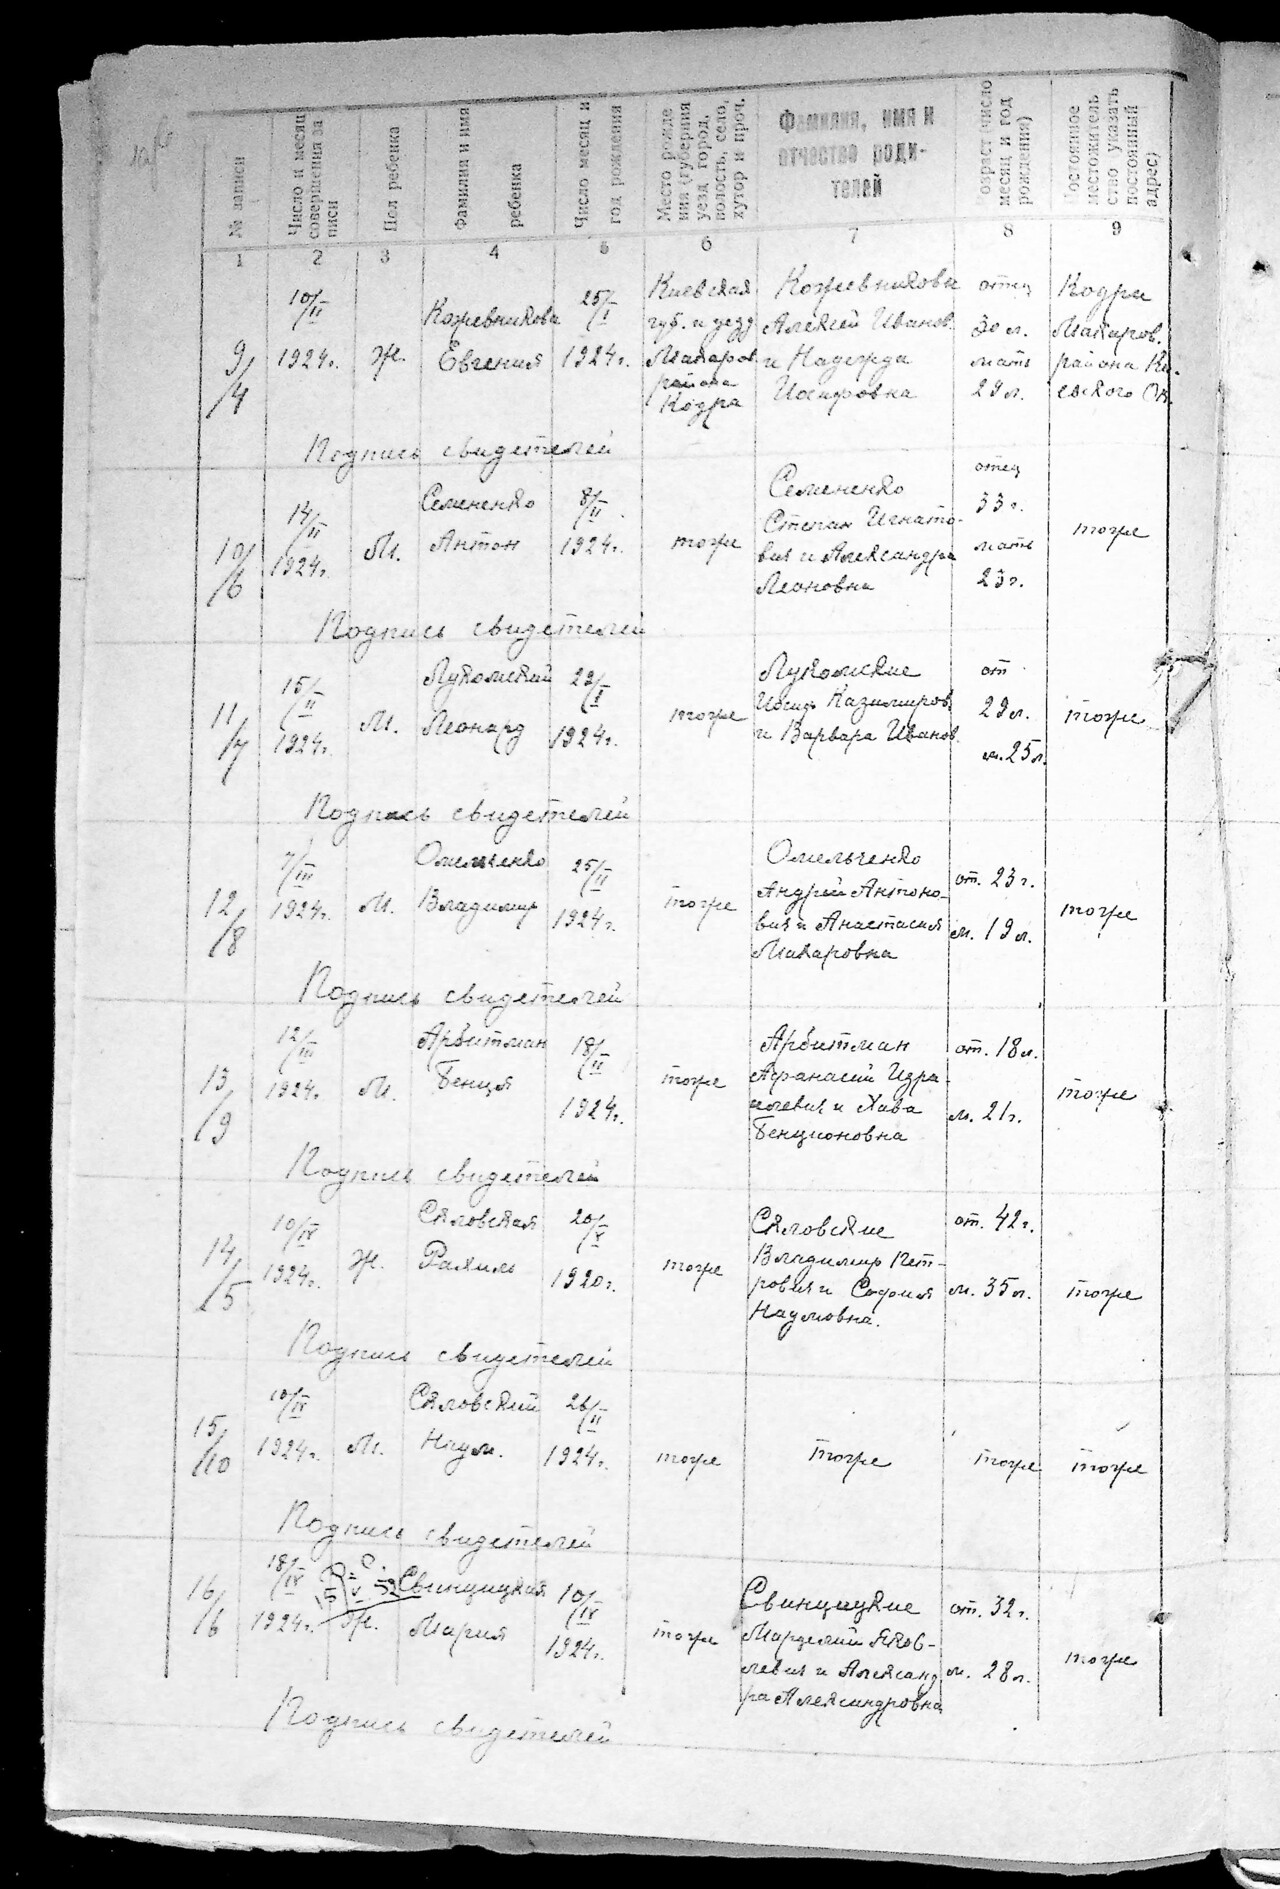 № записи
Число и месяц
совершения за
писи
Пол ребенка
Фамилия и имя
ребенка
Число месяц и
год рождения
Место рожде
ния (губерния
уезд город,
волость, село,
хутор и проч.
Фамилия, имя и
отчество роди-
телей
Возраст (число
месяц и год
рождения)
Постоянное
местожитель
ство указать
постоянный
адрес)
1 2 3 4 5 6 7 8 9
9/4
10/II
1924г.
Ж.
Кожевникова
Евгения
25/I
1924г.
Киевская
губ. и уезд
Макаров
района
Кодра
Кожевниковы
Алексей Иванов.
и Надежда
Иосифовна
отец
30 л.
мать
29 л.
Кодри
Макаров.
района Ки-
евского Ок.
Подпись свидетелей
10/6
14/II
1924г.
М.
Семененко
Антон
8/II
1924г.
тоже
Семененко
Степан Игнато-
вич и Александра
Леоновна
отец
33 г.
мать
23 г.
тоже
Подпись свидетелей
11/7
15/II
1924г.
М.
Лукомский
Леонард
29/I
1924г.
тоже
Лукомские
Иосиф Казимиров.
и Варвара Иванов.
от
29 л.
м. 25 л.
тоже
Подпись свидетелей
12/8
7/III
1924г.
М.
Омельченко
Владимир
25/II
1924г.
тоже
Омельченко
Андрей Антоно-
вич и Анастасия
Макаровна
от. 23 г.
м. 19 л.
тоже
Подпись свидетелей
13/9
12/III
1924г.
М.
Арбитман
Бенця
18/II
1924г.
тоже
Арбитман
Афанасий Изра-
илевич и Хава
Бенционовна
от. 18 л.
м. 21 г.
тоже
Подпись свидетелей
14/5
10/IV
1924г.
Ж.
Скловская
Рахиль
20/V
1920г.
тоже
Скловские
Владимир Пет-
рович и Софония
Наумовна.
от. 42 г.
м. 35 л.
тоже
Подпись свидетелей
15/10
10/IV
1924г.
М.
Скловский
Наум.
26/II
1924г.
тоже
тоже
тоже
тоже
Подпись свидетелей
16/6
18/IV
1924г.
Ж.
Свинцицкая
Мария
10/IV
1924г.
тоже
Свинцицкие
Марделий Яков-
левич и Александ
ра Александровна
от. 32 г.
м. 28 л.
тоже
Подпись свидетелей